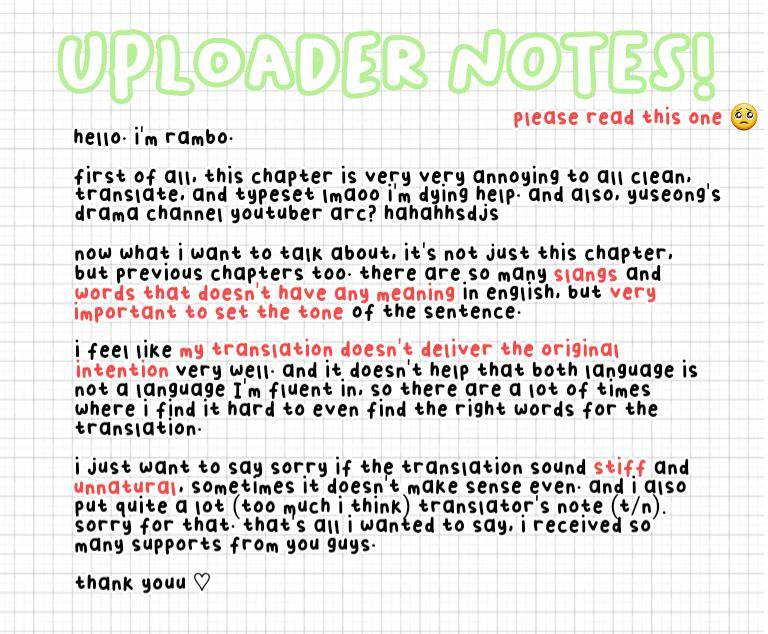 UPLOADER NOTES!
please read this one 🥺
hello. i'm rambo.
first of all, this chapter is very very annoying to all clean,
translate, and typeset lmaoo i'm dying help. and also, yuseong's
drama channel youtuber arc? hahahhsdjs
now what i want to talk about, it's not just this chapter,
but previous chapters too. there are so many slangs and
words that doesn't have any meaning in english, but very
important to set the tone of the sentence.
i feel like my translation doesn't deliver the original
intention very well. and it doesn't help that both language is
not a language I'm fluent in, so there are a lot of times
where i find it hard to even find the right words for the
translation.
i just want to say sorry if the translation sound stiff and
unnatural, sometimes it doesn't make sense even. and i also
put quite a lot (too much i think) translator's note (t/n).
sorry for that. that's all i wanted to say, i received so
many supports from you guys.
thank youu ♡